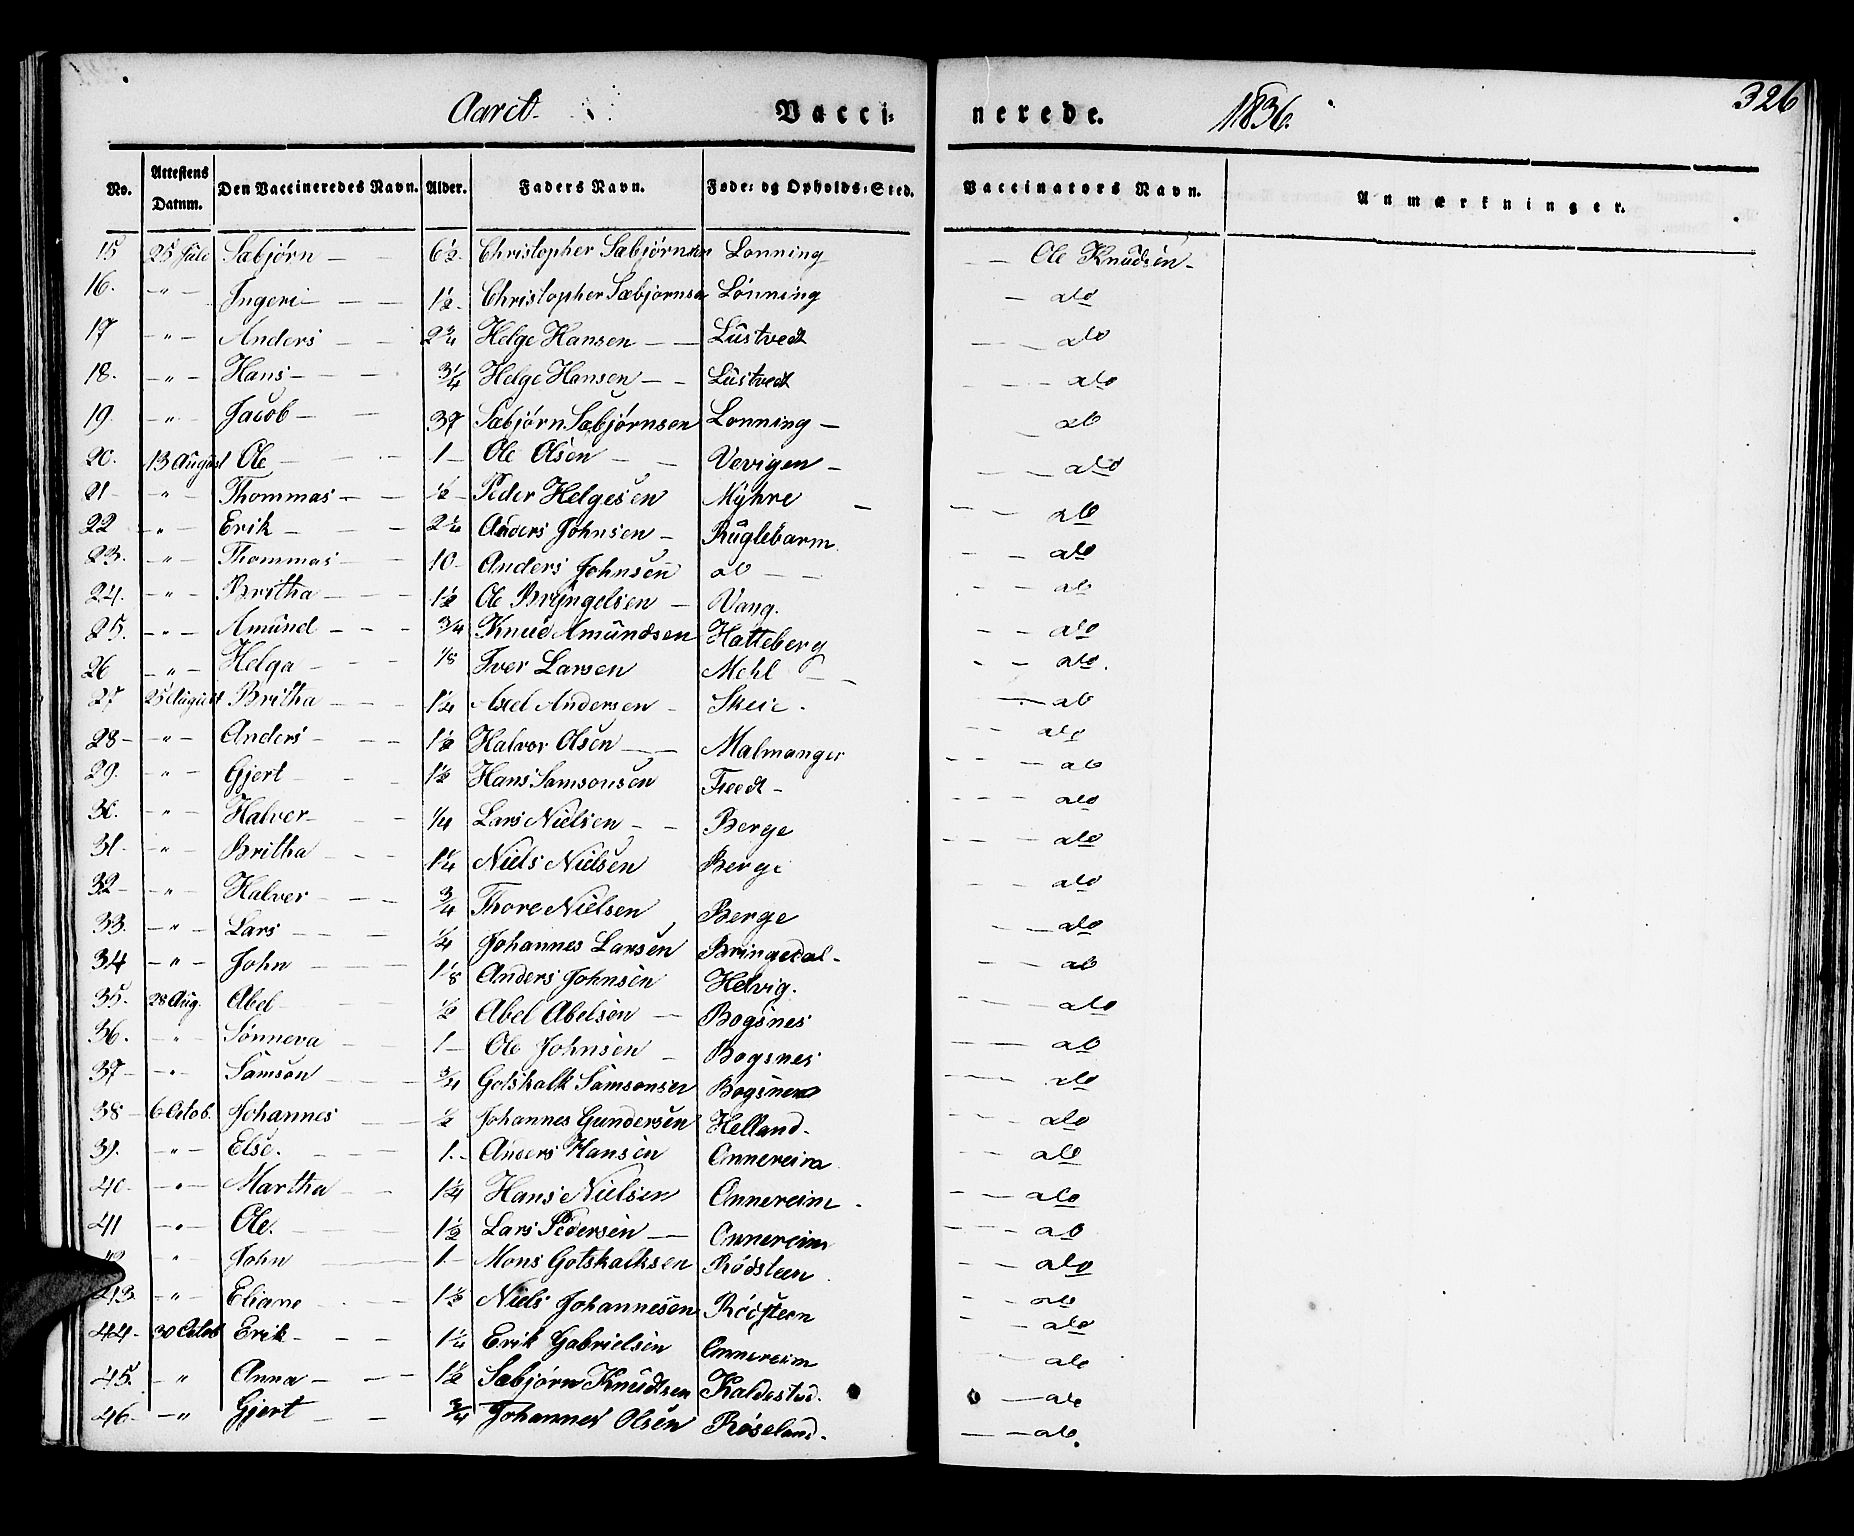 326
Aaret. Vacci: nerede. 1836.
No. Attestens Datum. Den Vaccineredes Navn. Alder. Faders Navn. Føde: og Opholds:Sted. Vaccinators Navn. Anmærkninger.
15 25 Sæbjørn — — 6½ Christopher Sæbjørnsen Lonning — — Ole Knudsen —
16. — " — Ingeri — — — 1½. Christopher Sæbjørnsen Lønning — do
17 — " — Anders — — 2¾ Helge Hansen — — Lüstvedt — — do
18. — " — Hans — — — 3/4 Helge Hansen — — Lüstvedt — — — do
19. — " — Jacob — — 37 Sæbjørn Sæbjørnsen Lonning — — do
20. 13 August Ole — — — 1 — Ole Olsen — — Vevigen — — — do
21 — " — Thommas — — ½ — Peder Helgesen Mÿhre — — — do
22 — " — Erik — — — 2¼ Anders Johnsen — Rüglebarm — — do
23. — " — Thommas — — 10 — Anders Johnsen do — — — do
24. — " — Britha — — — 1½ Ole Brÿngelsen — Vang. — — do
25. — " — Amund — — — 3/4 Knud Amündsen Hatteberg — — do
26 — " — Helga — — — 1/8 Iver Larsen Mehl — — — — do.
27 25 August Britha — — 1¼ Axel Andersen — Skeie. — do
28 — — " — Anders — — — 1½ Halvor Olsen — — Malmanger — — do
29. — " — Gjert — — — 1½ Hans Samsonsen Treedt — — — — do
30. — " — Halver — — — 1/4 Lars Nielsen — — Berge — — — do
31 — — " — Britha — — 1¼ Niels Nielsen Berge — — — do
32 — — " — Halver — — — 3/4 Thore Nielsen Berge — — do
33. — " — Lars — — — 1/4 Johannes Larsen Bringedal — — — do
34 — " — John — — — 1⅛ Anders Johnsen Helvig. — — do
35. 28 Aug. Abel — — — ½ Abel Abelson — Bogsnes — — — do
36. — " — Sønneva — — 1 — Ole Johnsen — Bogsnes — — — do
37 — — " — Samson — — — 3/4 Gotskalk Samsonsen Bogsnes — — — do
38 — 6 Octob. Johannes — — ½ Johannes Gundersen Helland. — — — do
39. — " — Else. — — — 1. — Anders Hansen Onnereim — — do
40 — — " — Martha — — 1¼ Hans Nielsen Onnereim. — — do
41 — " — Ole. — — — 1½ Lars Pedersen — Onnereim — — — do
42 — " — John — — 1. — Mons Gotskalksen Rødsteen — — do
43. — " — Eliane — — — 1½ Niels Johannesen Rødsteen — — do
44 — 30 Octob Erik — — — 1¼ Erik Gabrielsen Onnereim — — do
45. — " Anna — — — 1½ Sæbjørn Knudtsen Kaldestad. — do
46. — " Gjert — — 3/4 Johannes Olsen Røseland. — — do.